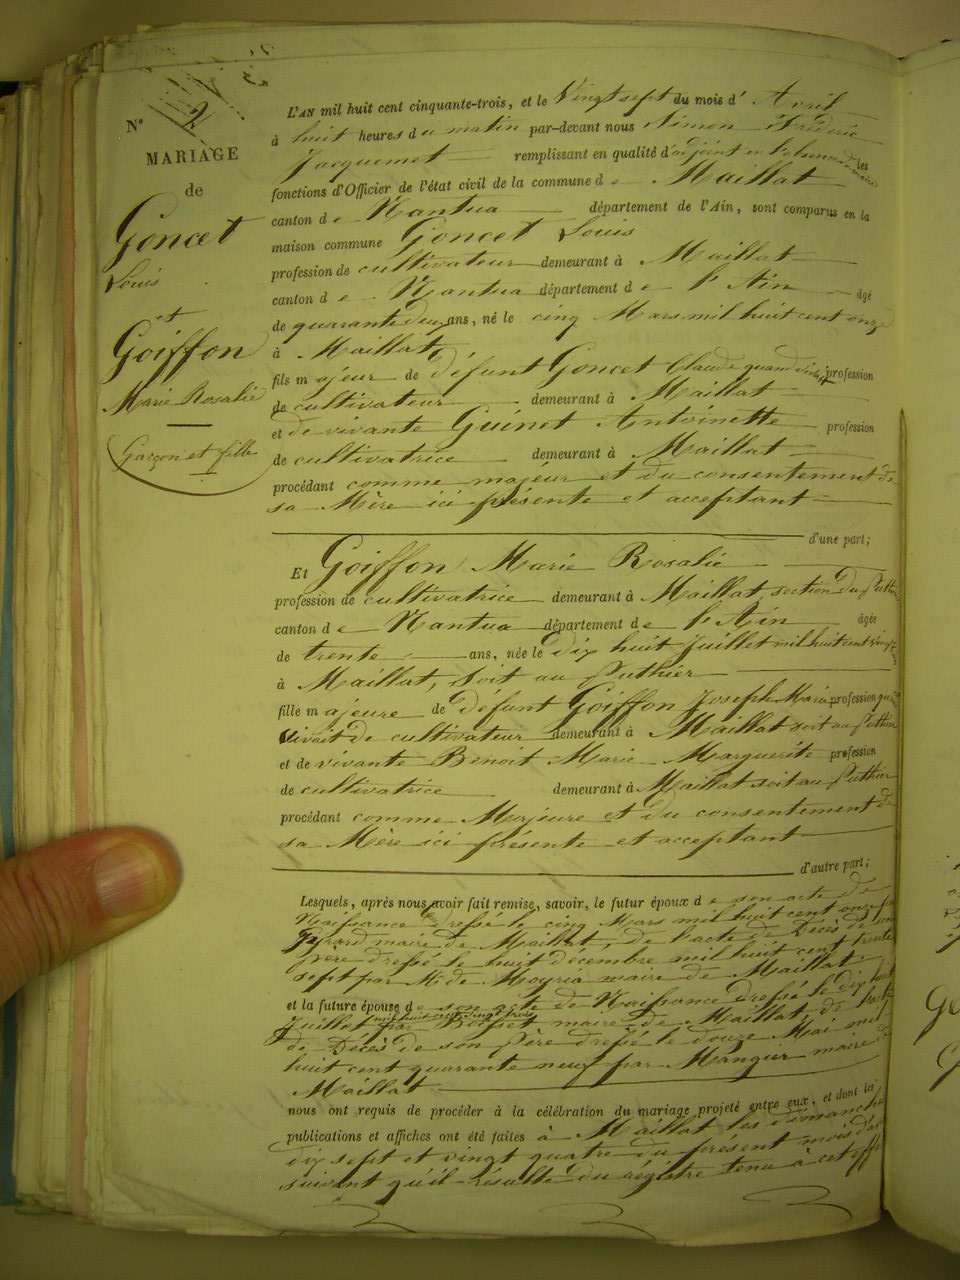 Nº 2
MARIAGE
de
Goncet
Louis
et
Goiffon
Marie Rosalie
Garçon et fille
L'AN mil huit cent cinquante-trois, et le Vingt sept du mois d' Avril
à huit heures du matin par-devant nous Simon Fréderic
Jacquemet remplissant en qualité d'adjoint en l'absence du maire les
fonctions d'Officier de l'état civil de la commune de Maillat
canton de Nantua département de l'Ain, sont comparus en la
maison commune Goncet Louis
profession de cultivateur demeurant à Maillat
canton de Nantua département de l'Ain âgé
de quarante deux ans, né le cinq Mars mil huit cent onze
à Maillat
fils majeur de défunt Goncet Claude quand vivait profession
de cultivateur demeurant à Maillat
et de vivante Guinet Antoinette profession
de cultivatrice demeurant à Maillat
procédant comme majeur et du consentement de
sa Mère ici présente et acceptant
d'une part;
Et Goiffon Marie Rosalie
profession de cultivatrice demeurant à Maillat, section du Puthier
canton de Nantua département de l'Ain âgée
de trente ans, née le dix huit Juillet mil huit cent vingt trois
à Maillat, soit au Puthier
fille majeure de défunt Goiffon Joseph Marie profession quand
vivait de cultivateur demeurant à Maillat soit au Puthier
et de vivante Benoit Marie Marguerite profession
de cultivatrice demeurant à Maillat soit au Puthier
procédant comme Majeure et du consentement de
sa Mère ici présente et acceptant
d'autre part;
Lesquels, après nous avoir fait remise, savoir, le futur époux de son acte de
Naissance dressé le cinq Mars mil huit cent onze par
Girard maire de Maillat, de l'acte de Décès de son
père dressé le huit décembre mil huit cent trente
sept par Mr de Moyria maire de Maillat.
et la future épouse de son acte de Naissance dressé le dix huit
Juillet mil huit cent vingt trois par maire de Maillat, de l'acte
de Décès de son père dressé le douze Mai mil
huit cent quarante neuf par Mangur maire de
Maillat
nous ont requis de procéder à la célébration du mariage projeté entre eux, et dont les
publications et affiches ont été faites à Maillat les dimanches
dix sept et vingt quatre du présent mois d'avril
suivant qu'il résulte du régistre tenu à cet effet